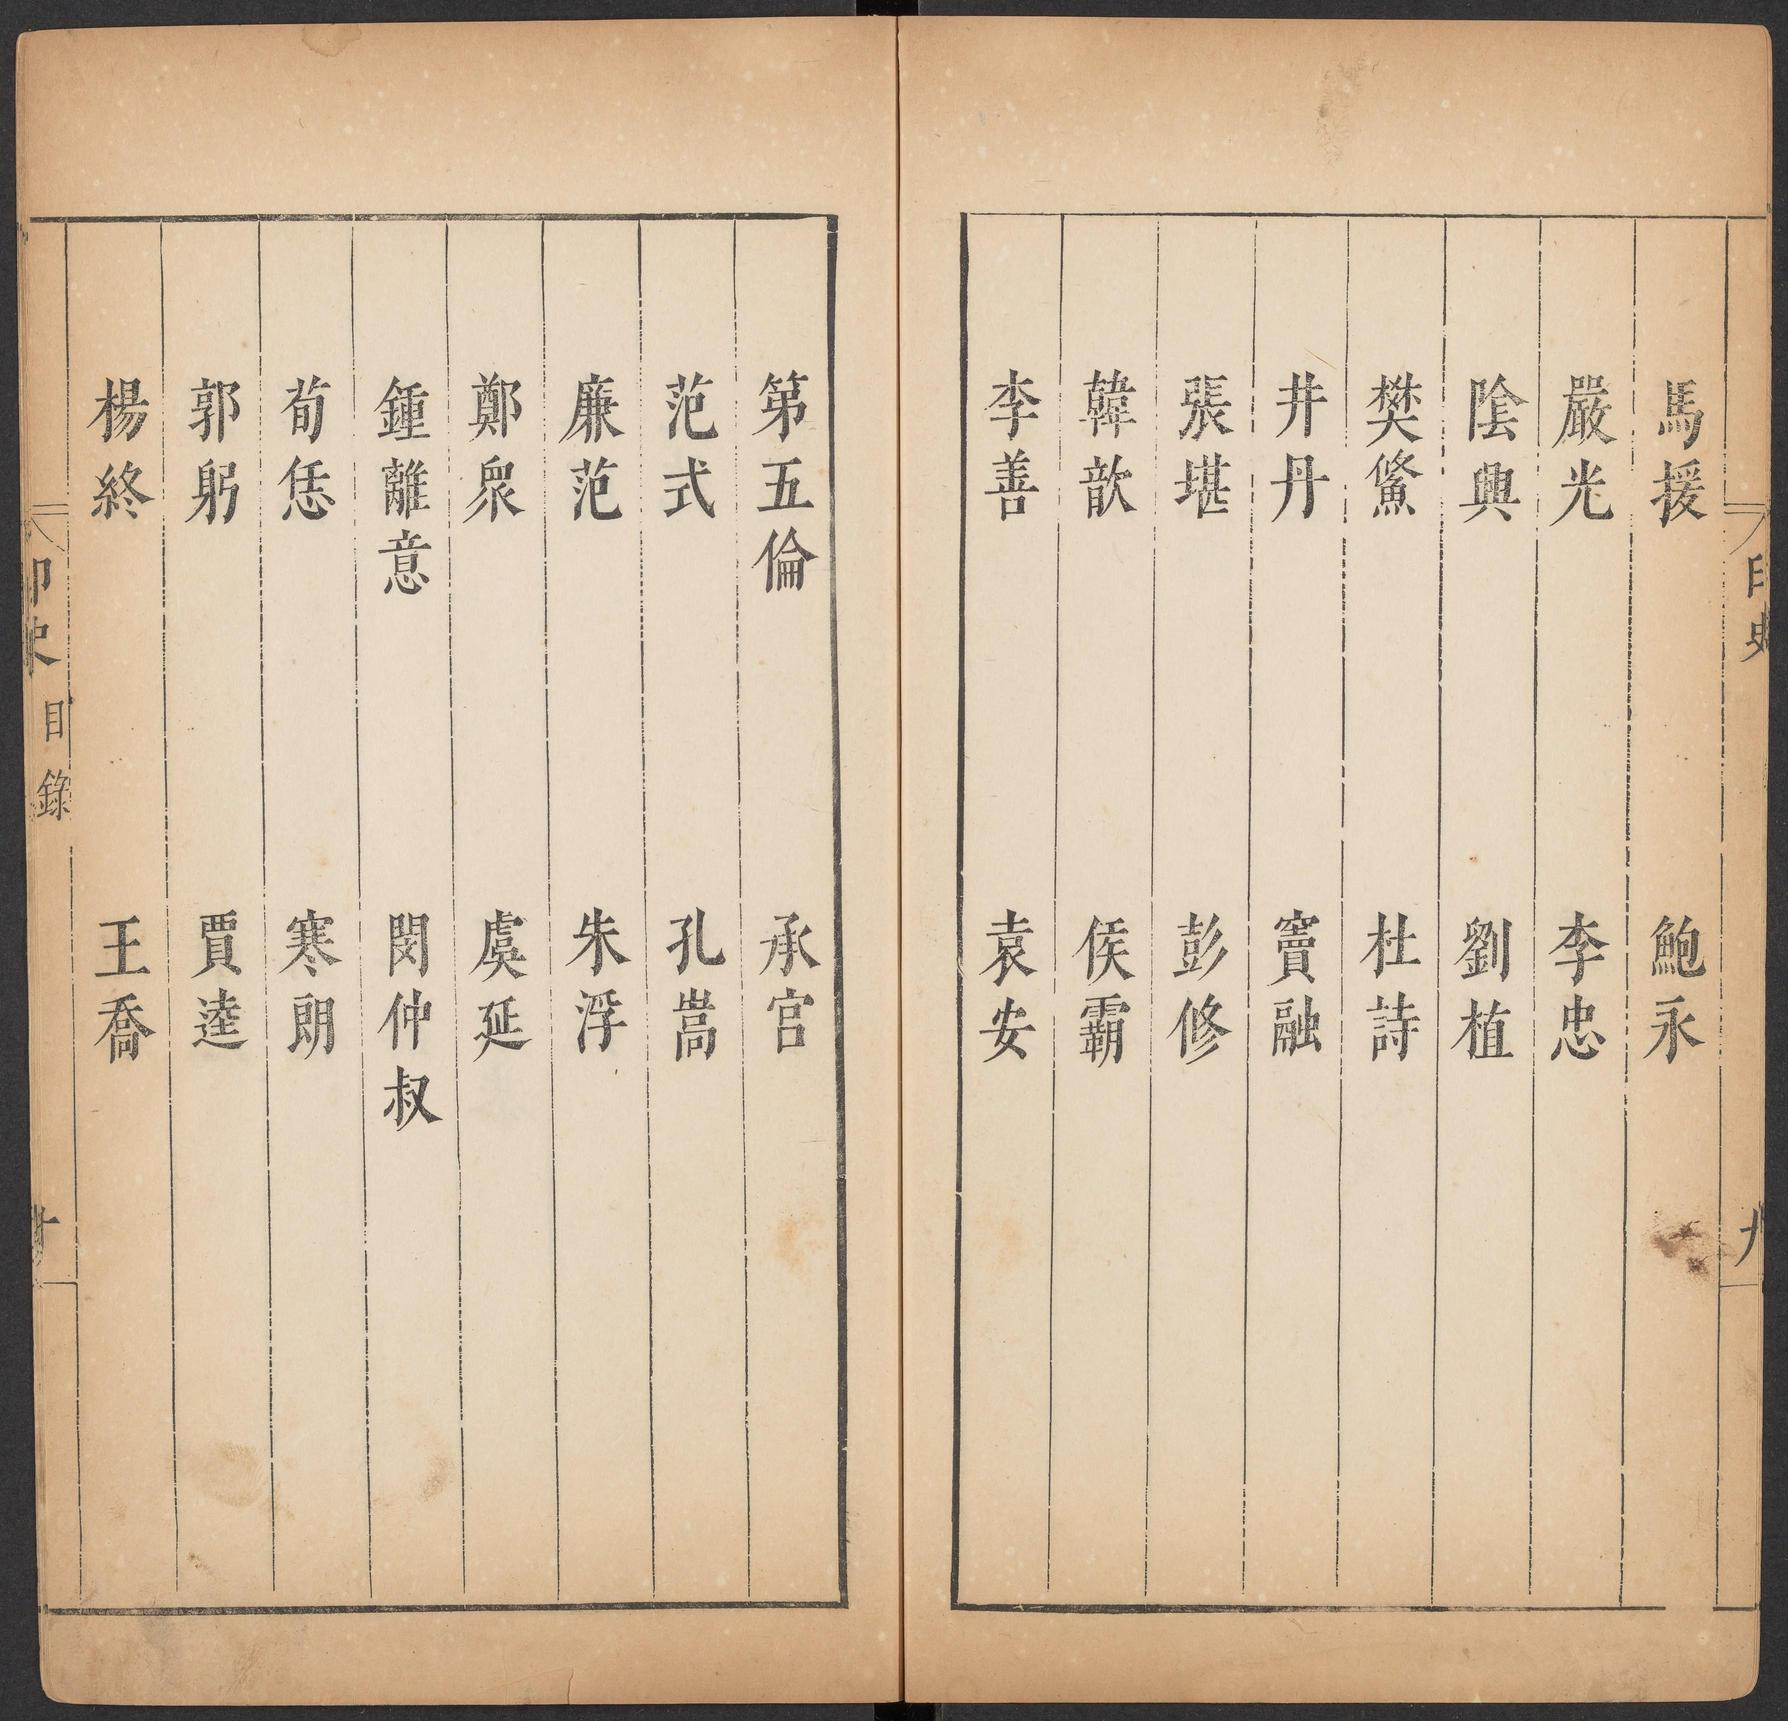 馬援 鮑永
嚴光 李忠
陰興 劉植
樊鯈 杜詩
井丹 竇融
張堪 彭修
韓歆 侯霸
李善 袁安
第五倫 承宮
范式 孔嵩
廉范 朱浮
鄭衆 虞延
鍾離意 閔仲叔
荀恁 寒朗
郭躬 賈逵
楊終 王喬
印史 目錄